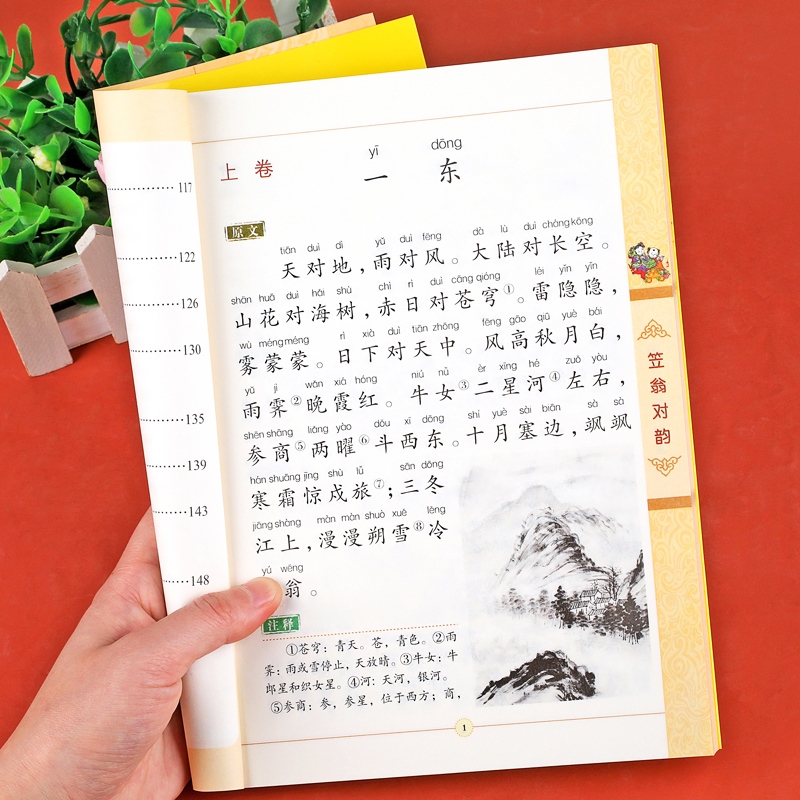 117
122
126
130
135
139
143
148
上卷
yī dōng
一 东
原文
tiān duì dì yǔ duì fēng dà lù duì cháng kōng
天对地，雨对风。大陆对长空。
shān huā duì hǎi shù chì rì duì cāng qióng léi yǐn yǐn
山花对海树，赤日对苍穹①。雷隐隐，
wù méng méng rì xià duì tiān zhōng fēng gāo qiū yuè bái
雾蒙蒙。日下对天中。风高秋月白，
yǔ jì wǎn xiá hóng niú nǚ èr xīng hé zuǒ yòu
雨霁②晚霞红。牛女③二星河④左右，
shēn shāng liǎng yào dǒu xī dōng shí yuè sài biān sà sà
参商⑤两曜⑥斗西东。十月塞边，飒飒
hán shuāng jīng shù lǚ sān dōng
寒霜惊戍旅⑦；三冬
jiāng shàng màn màn shuò xuě lěng
江上，漫漫朔雪⑧冷
yú wēng
翁。
注释
①苍穹：青天。苍，青色。②雨
霁：雨或雪停止，天放晴。③牛女：牛
郎星和织女星。④河：天河，银河。
⑤参商：参，参星，位于西方；商，
1
笠翁对韵